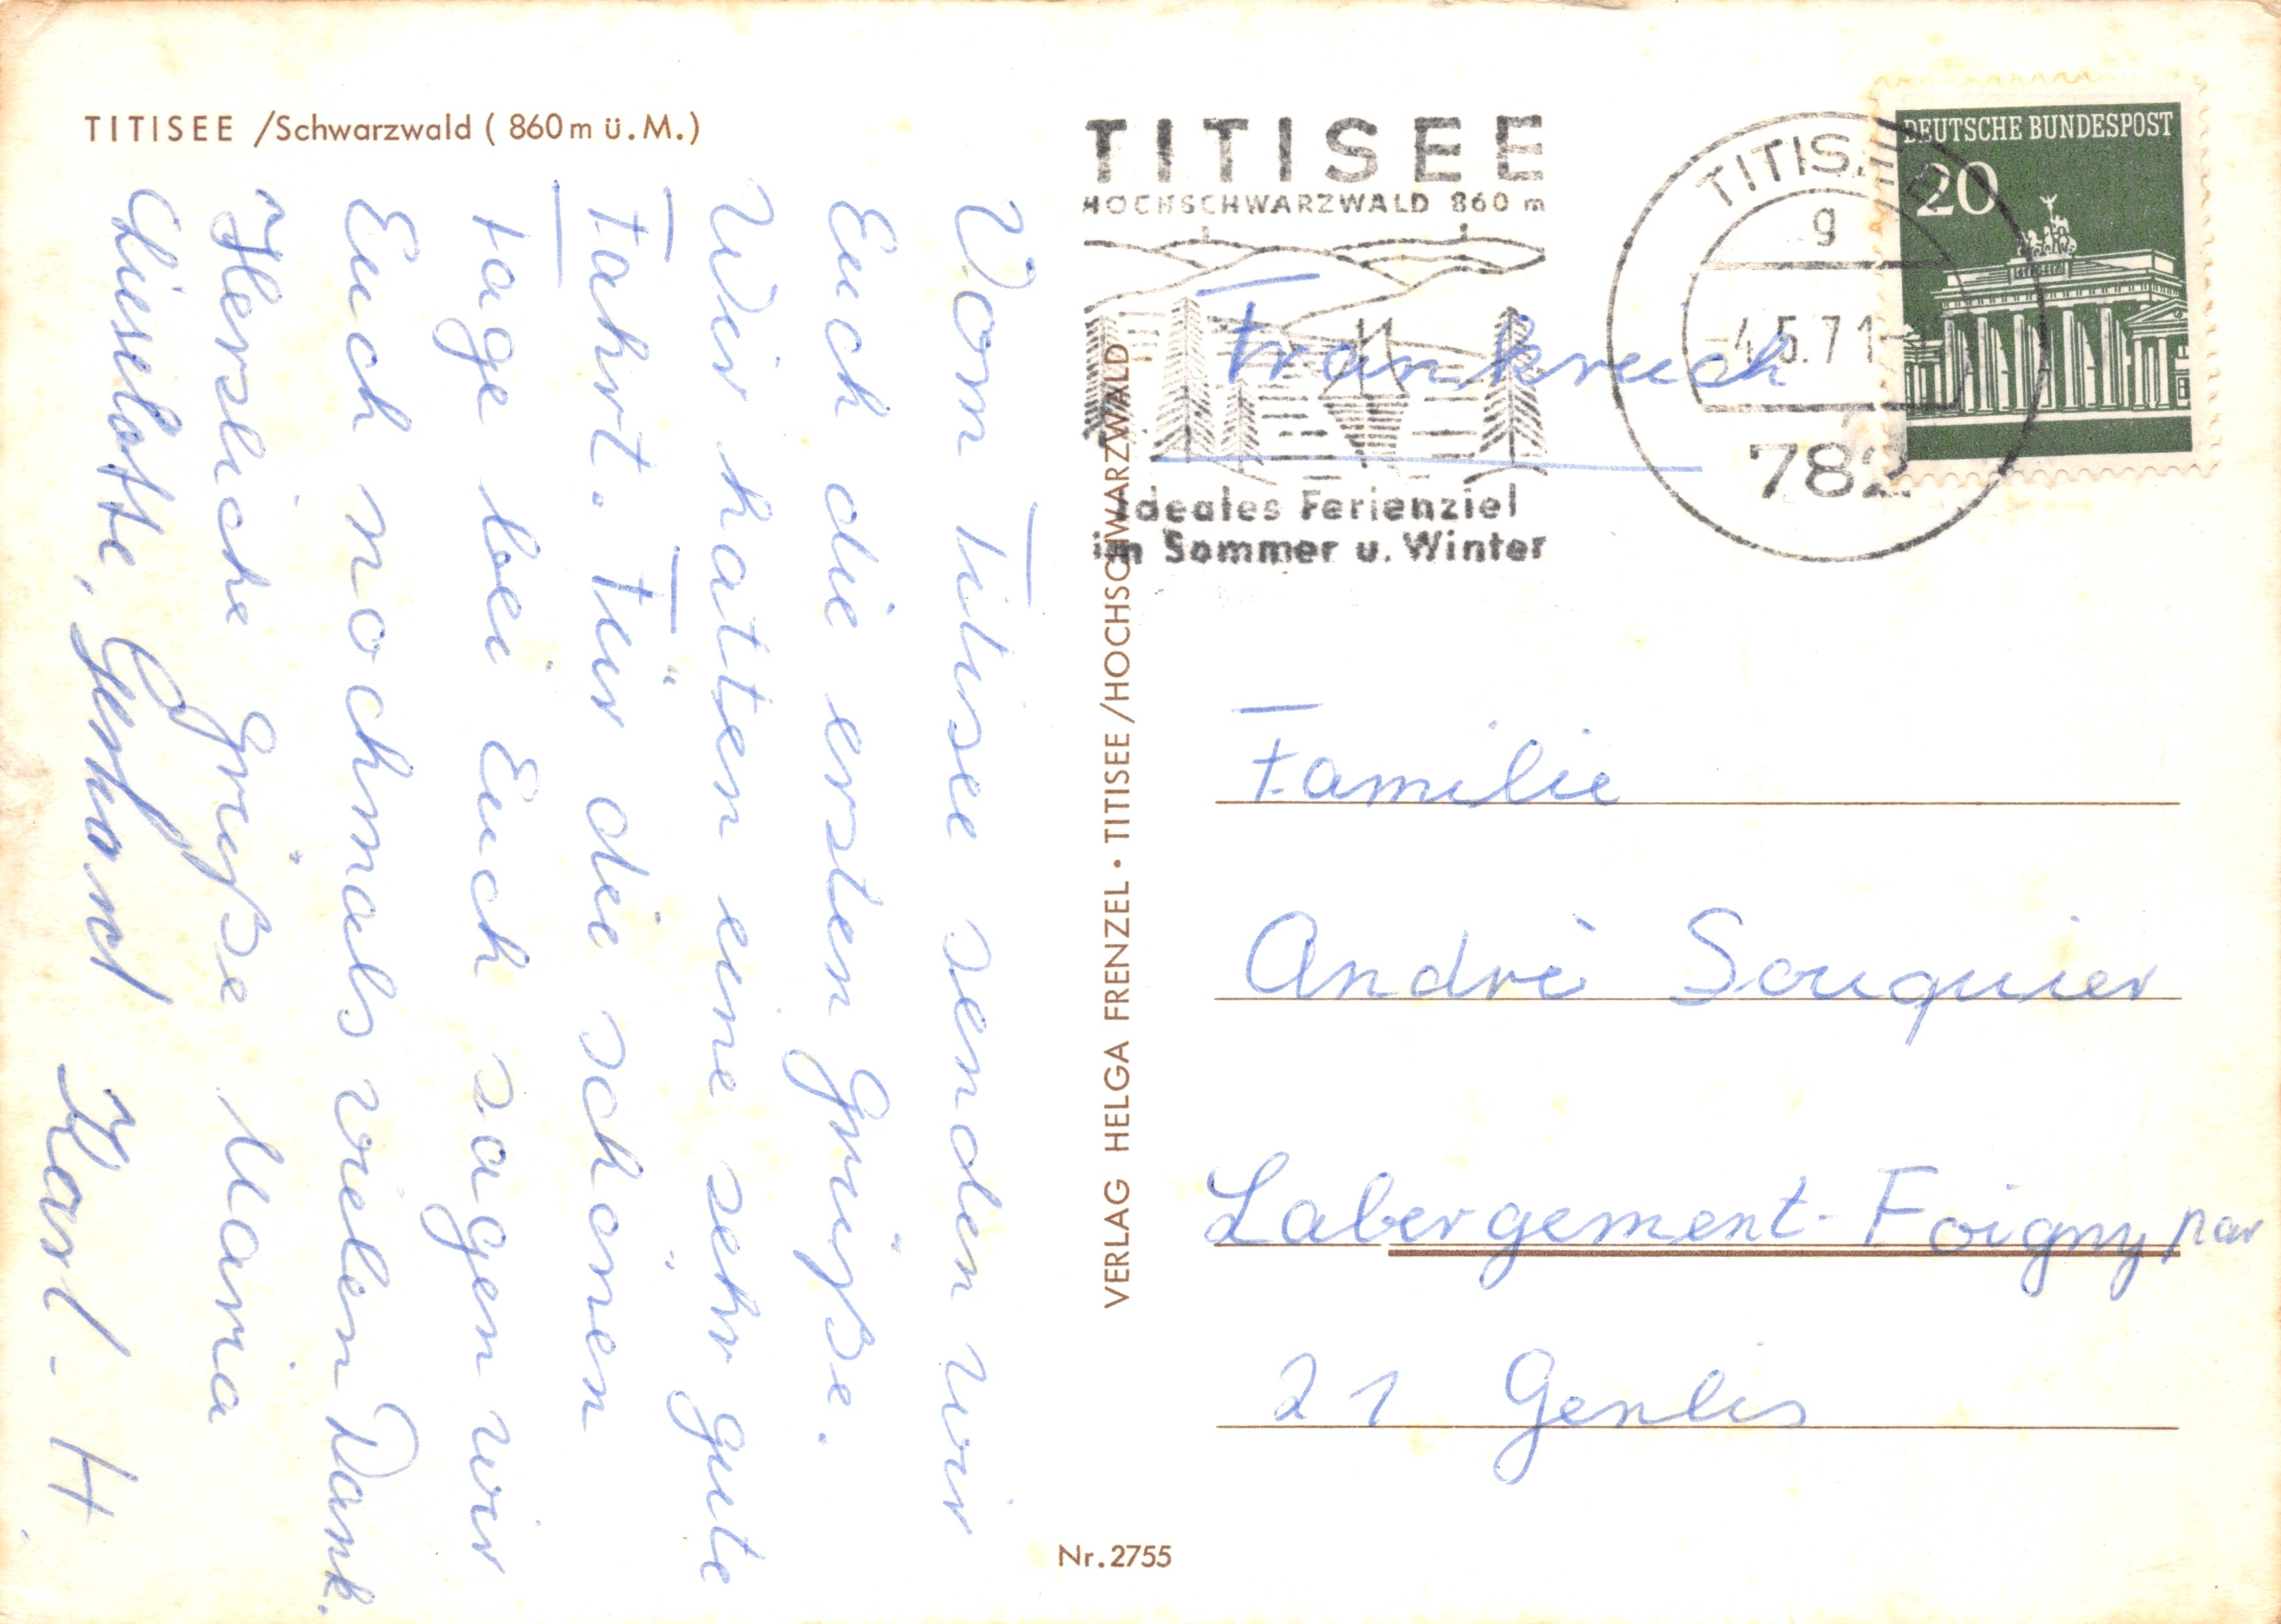 TITISEE /Schwarzwald ( 860 m ü. M.)
Vom Titisee senden wir
Euch die ersten Grüße.
Wir hatten eine sehr gute
Fahrt. Für die schönen
Tage bei Euch sagen wir
Euch nochmals vielen Dank.
Herzliche Grüße Maria
Liselotte, Gerhard Karl-H
VERLAG HELGA FRENZEL • TITISEE /HOCHSCHWARZWALD
Nr. 2755
TITISEE
HOCHSCHWARZWALD 860 m
Ideales Ferienziel
im Sommer u. Winter
TITISEE
g
-4.5.71-
782
DEUTSCHE BUNDESPOST
20
Frankreich
Familie
André Souquier
Labergement-Foigny par
21 Genlis